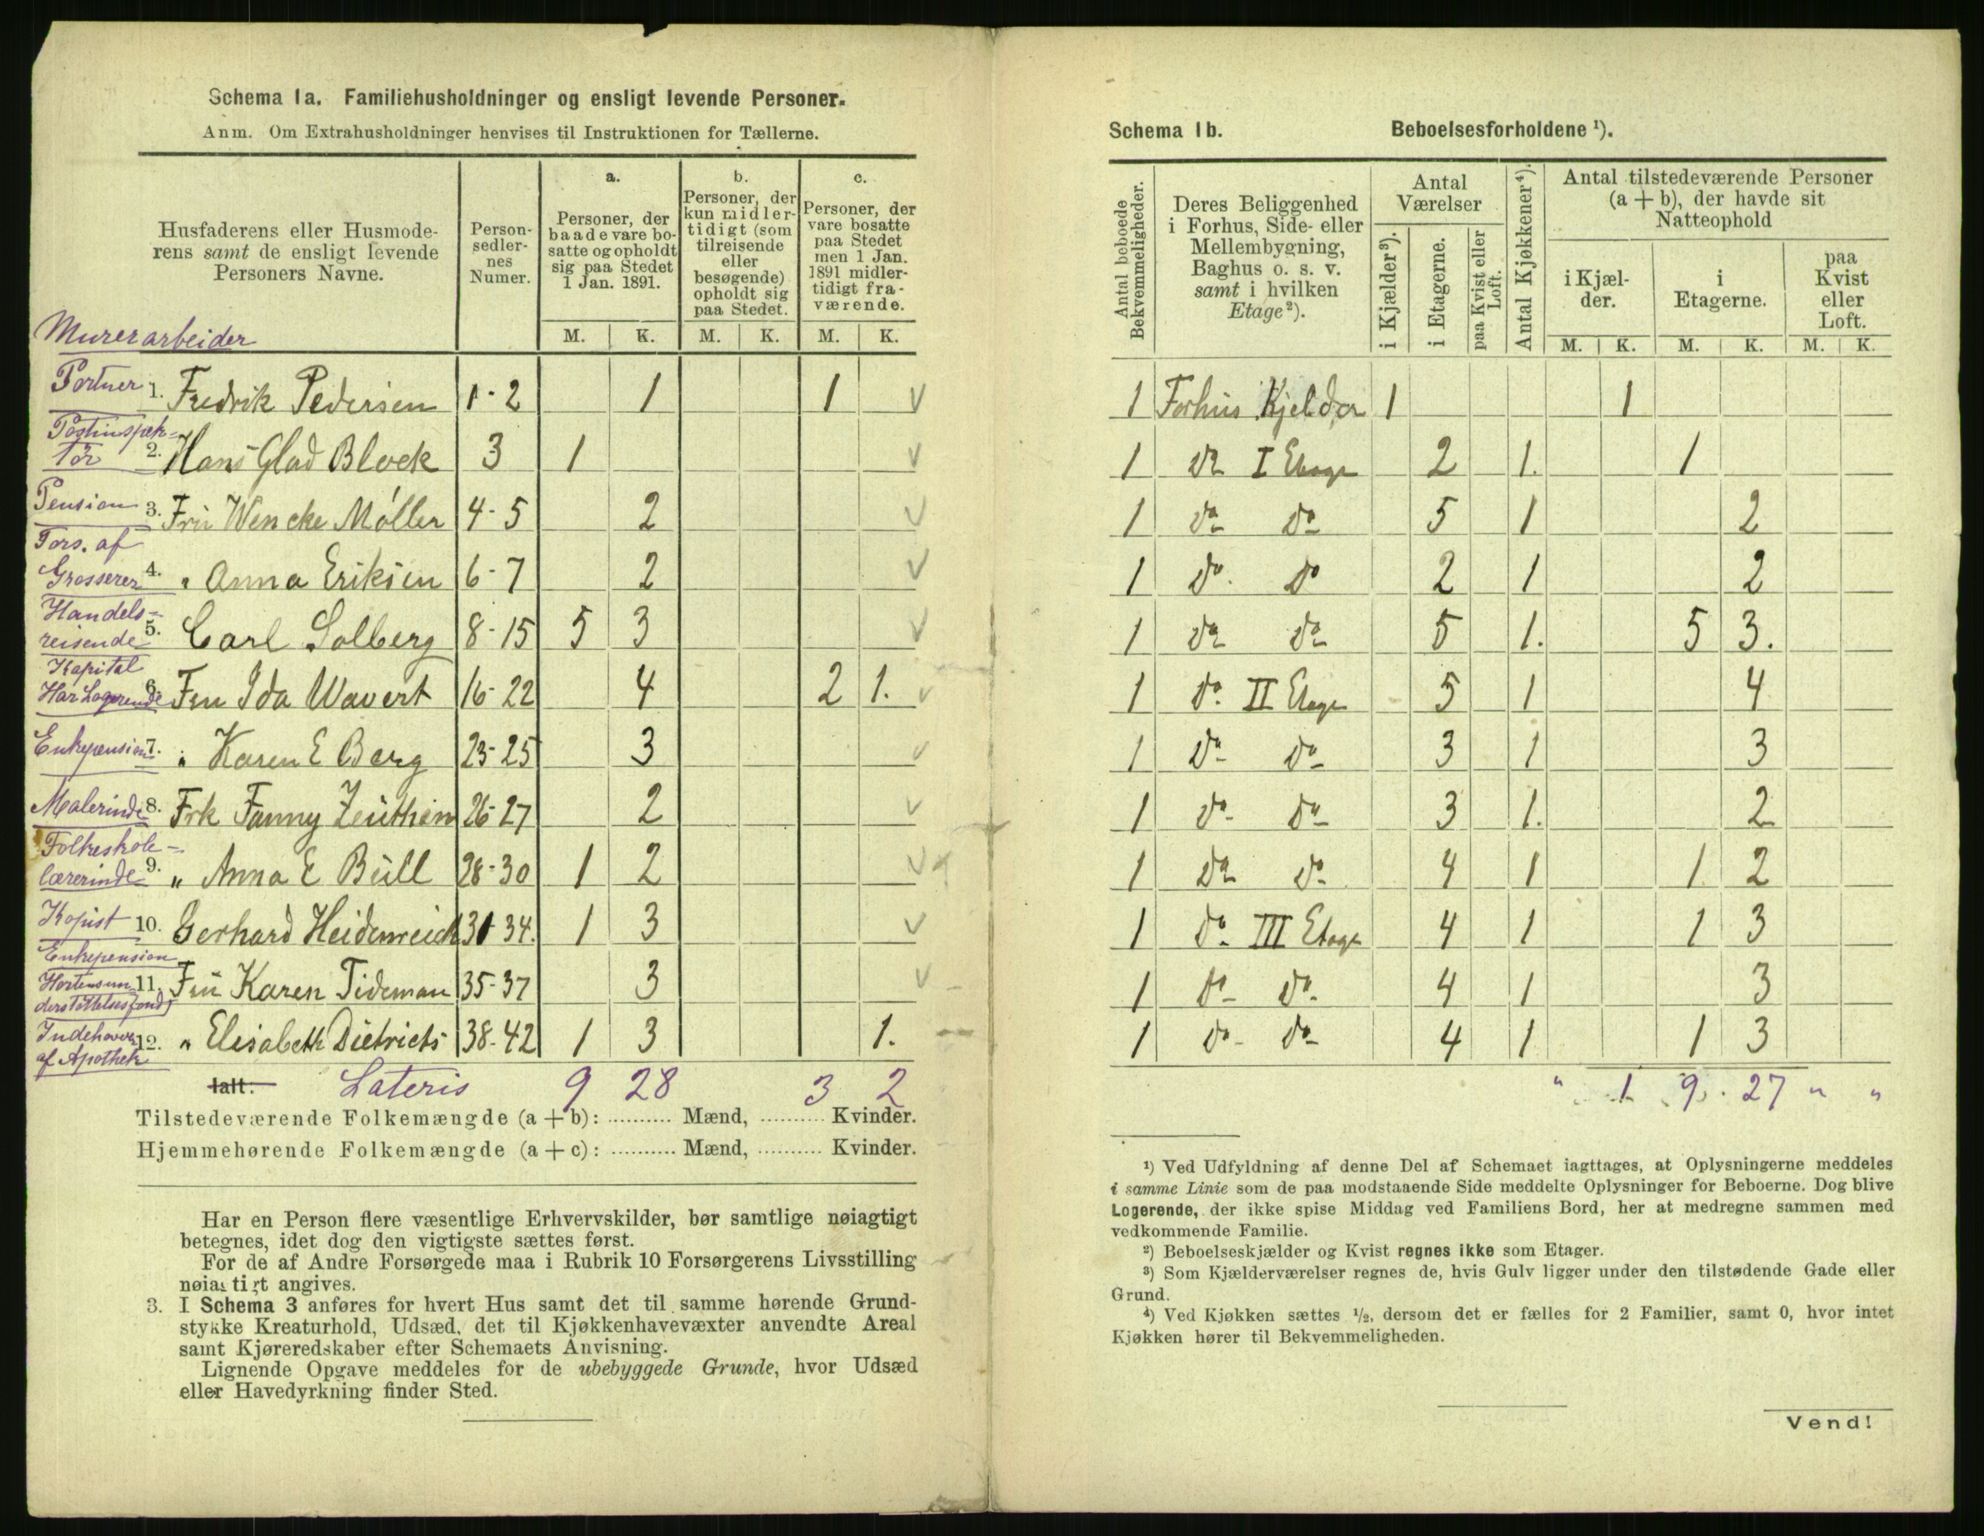 Schema 1a. Familiehusholdninger og ensligt levende Personer.
Anm. Om Extrahusholdninger henvises til Instruktionen for Tællerne.
Husfaderens eller Husmode-
rens samt de ensligt levende
Personers Navne.
Person-
sedler-
nes
Numer.
a.
Personer, der
baade vare bo-
satte og opholdt
sig paa Stedet
1 Jan. 1891.
b.
Personer, der
kun midler-
tidigt (som
tilreisende
eller
besøgende)
opholdt sig
paa Stedet.
c.
Personer, der
vare bosatte
paa Stedet
men 1 Jan.
1891 midler-
tidigt fra-
værende.
M. K. M. K. M. K.
Murerarbeider
Portner 1. Fredrik Pedersen 1-2 1 1
Postinspek-
tör 2. Hans Glad Block 3 1
Pension 3. Fru Wencke Møller 4-5 2
Fors. af
Grosserer 4. " Anna Eriksen 6-7 2
Handels-
reisende 5. Carl Solberg 8-15 5 3
Kapital
Har Logerende 6. Fru Ida Wavert 16-22 4 2 1.
Enkepension 7. " Karen E Berg 23-25 3
Malerinde 8. Frk Fanny Zeuthen 26-27 2
Folkeskole-
lærerinde 9. " Anna E Bull 28-30 1 2
Kopist 10. Gerhard Heidenreich 31-34. 1 3
Enkepension
Hortensun- 11. Fru Karen Tideman 35-37 3
derstöttelsesfond
Indehaver 12. " Elisabeth Dietrichs 38-42 1 3 1.
af Apothek
Ialt. Lateris 9 28 3 2
Tilstedeværende Folkemængde (a + b): .......... Mænd, .......... Kvinder.
Hjemmehørende Folkemængde (a + c): .......... Mænd, .......... Kvinder.
Har en Person flere væsentlige Erhvervskilder, bør samtlige nøiagtigt
betegnes, idet dog den vigtigste sættes først.
For de af Andre Forsørgede maa i Rubrik 10 Forsørgerens Livsstilling
nøiagtigt angives.
3. I Schema 3 anføres for hvert Hus samt det til samme hørende Grund-
stykke Kreaturhold, Udsæd, det til Kjøkkenhavevæxter anvendte Areal
samt Kjøreredskaber efter Schemaets Anvisning.
Lignende Opgave meddeles for de ubebyggede Grunde, hvor Udsæd
eller Havedyrkning finder Sted.
Schema 1b. Beboelsesforholdene ¹).
Antal beboede
Bekvemmeligheder.
Deres Beliggenhed
i Forhus, Side- eller
Mellembygning,
Baghus o. s. v.
samt i hvilken
Etage²).
Antal
Værelser
i Kjælder³).
i Etagerne.
paa Kvist eller
Loft.
Antal Kjøkkener⁴).
Antal tilstedeværende Personer
(a + b), der havde sit
Natteophold
i Kjæl-
der.
i
Etagerne.
paa
Kvist
eller
Loft.
M. K. M. K. M. K.
1 Forhus Kjelder 1 1
1 do I Etage 2 1. 1
1 do do 5 1 2
1 do do 2 1 2
1 do do 5 1. 5 3.
1 do II Etage 5 1 4
1 do do 3 1 3
1 do do 3 1. 2
1 do do 4 1 1. 2
1 do III Etage 4 1 1 3
1 do do 4 1 3
1 do do 4 1 1 3
" 1 9. 27 " "
¹) Ved Udfyldning af denne Del af Schemaet iagttages, at Oplysningerne meddeles
i samme Linie som de paa modstaaende Side meddelte Oplysninger for Beboerne. Dog blive
Logerende, der ikke spise Middag ved Familiens Bord, her at medregne sammen med
vedkommende Familie.
²) Beboelseskjælder og Kvist regnes ikke som Etager.
³) Som Kjælderværelser regnes de, hvis Gulv ligger under den tilstødende Gade eller
Grund.
⁴) Ved Kjøkken sættes ½, dersom det er fælles for 2 Familier, samt 0, hvor intet
Kjøkken hører til Bekvemmeligheden.
Vend!